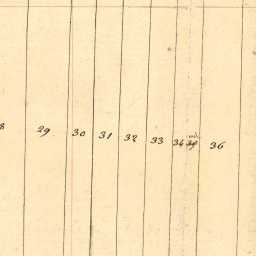 8 29 30 31 32 33 36 36